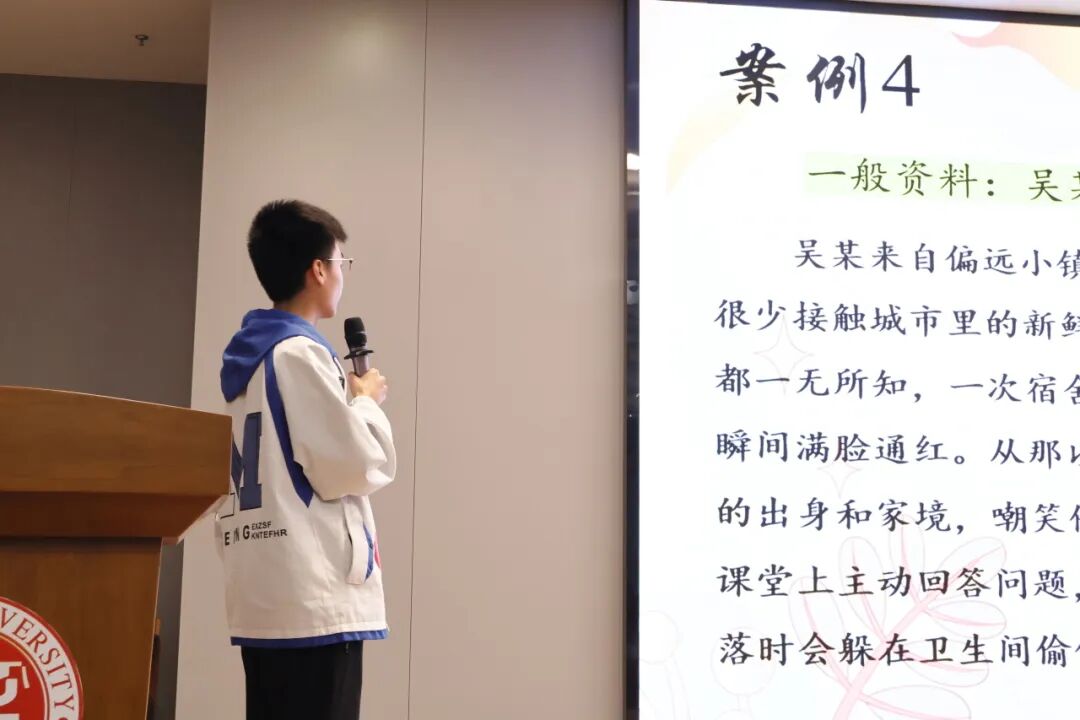 案例4
一般资料：吴
吴某来自偏远小镇
很少接触城市里的新鲜
都一无所知，一次宿舍
瞬间满脸通红。从那以
的出身和家境，嘲笑
课堂上主动回答问题，
落时会躲在卫生间偷
EXZSF
KNTEFHR
VERSITY